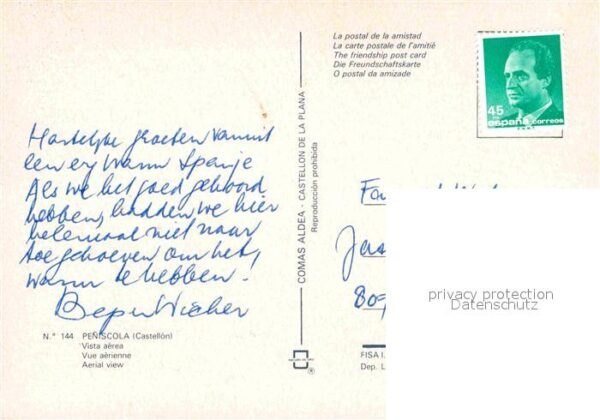 La postal de la amistad
La carte postale de l'amitié
The friendship post card
Die Freundschaftskarte
O postal da amizade
45
PTA
españa correos
Hartelijke groeten vanuit
een erg warm Spanje
Als we het goed gehoord
hebben, hadden we hier
helemaal niet naar
toe gehoeven om het
warm te hebben!
Bep en Wicher
COMAS ALDEA - CASTELLON DE LA PLANA
Reproducción prohibida
Fa
Jas
809
privacy protection
Datenschutz
N.º 144 PEÑISCOLA (Castellón)
Vista aérea
Vue aérienne
Aerial view
FISA I.
Dep. L
®